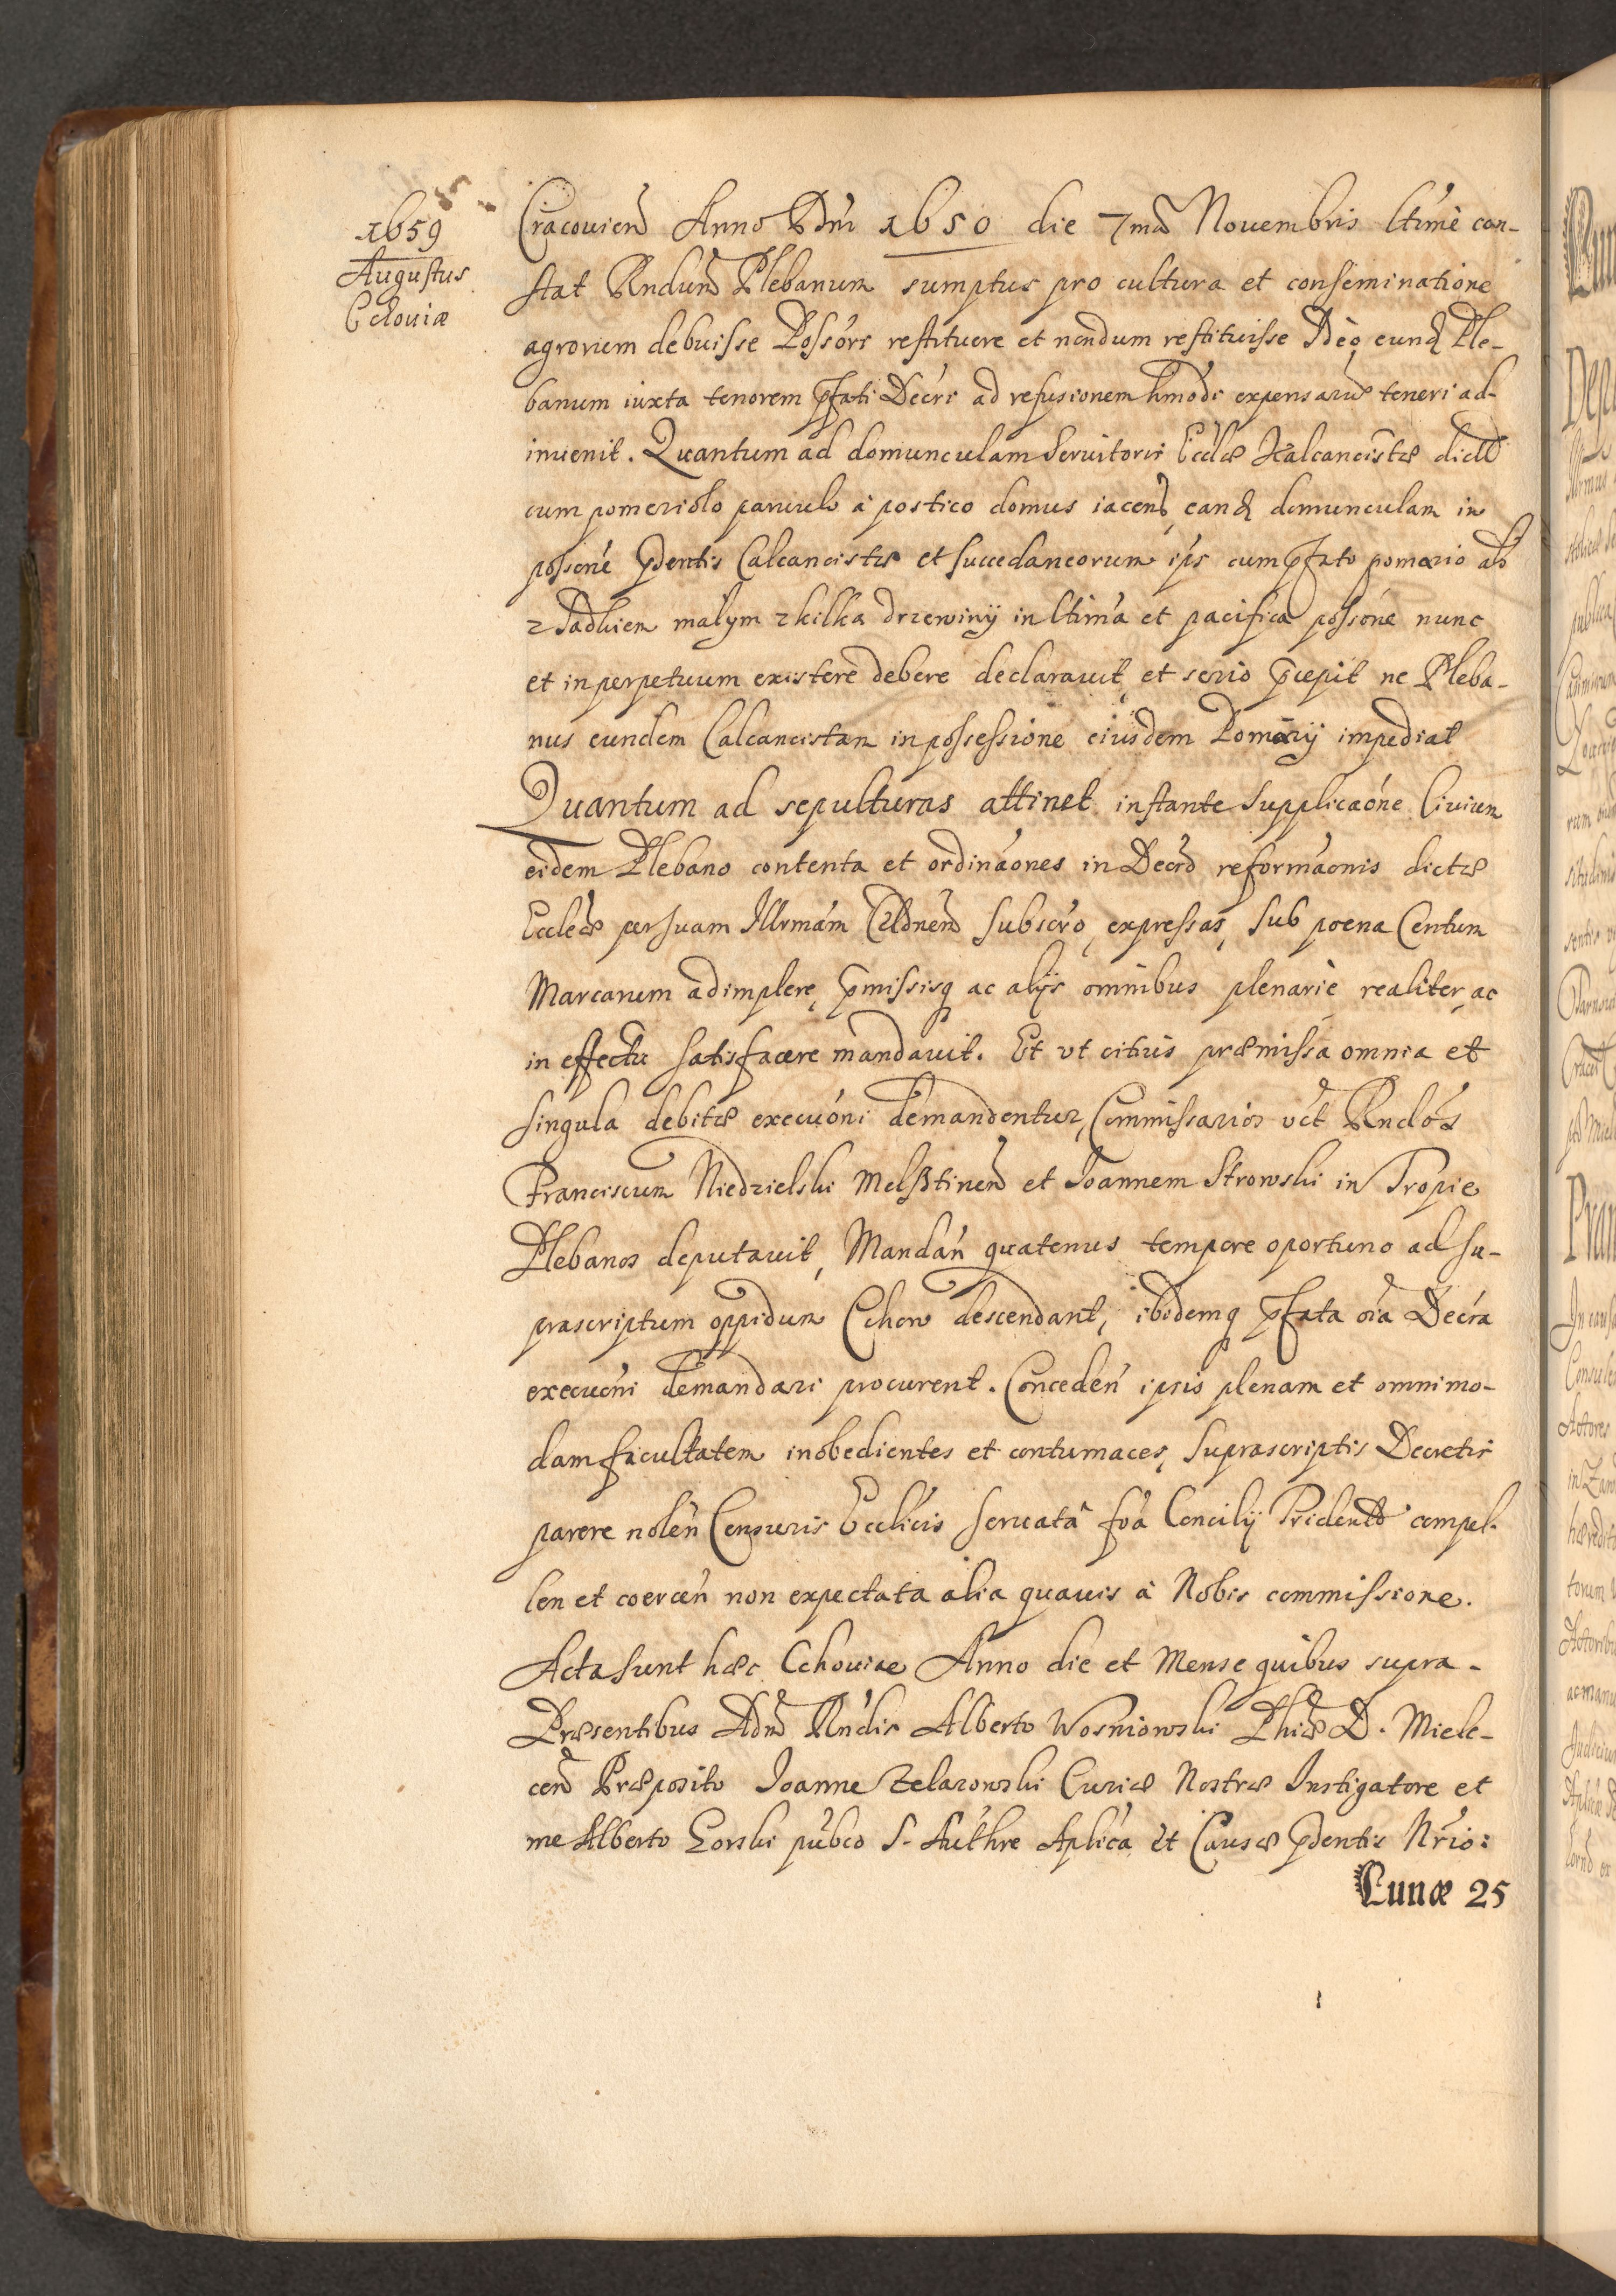 1659
Augustus
Celoviæ
Cracovien Anno Dni 1650 die 7ma Novembris ltime con-
stat Rndum Plebanum sumptus pro cultura et conseminatione
agrorum debuisse Possori restituere et nondum restituisse Ideo eund Ple-
banum iuxta tenorem pfati Decri ad refusionem hmodi expensarum teneri ad-
invenit. Quantum ad domunculam Servitoris Ecclæ Kalcancistæ dictæ
cum pomeriolo parvulo à postico domus iacen, eand domunculam in
possone pdentis Calcancistæ et succedaneorum ips cum pfato pomario als
z Sadkiem małym z kilka drzewiny in ltima et pacifica possone nunc
et in perpetuum existere debere declaravit, et serio pcepit ne Pleba-
nus eundem Calcancistam in possessione eiusdem Pomarij impediat
Quantum ad sepulturas attinet instante supplicaone Civium
eidem Plebano contenta et ordinaones in Decro reformaonis dictæ
Eccleæ per suam Illrmam Cldnem subscro, expressas, sub poena Centum
Marcarum adimplere, pmissisq ac alijs omnibus plenarie realiter, ac
in effectu satisfacere mandavit. Et ut citius præmissa omnia et
singula debitæ execuoni demandentur, Commissarios vct Rndos
Franciscum Niedzielski Melsztinen et Joannem Strowski in Tropie
Plebanos deputavit, Mandan quatenus tempore oportuno ad su-
prascriptum oppidum Cchow descendant, ibidemq pfata oia Decra
execuoni demandari procurent. Conceden ipsis plenam et omnimo-
dam facultatem inobedientes et contumaces, suprascriptis Decretis
parere nolen Censuris Ecclicis servatâ foa Concilij Tridenti compel-
len et coercen non expectata alia quavis à Nobis commissione.
Acta sunt hæc Cchoviae Anno die et Mense quibus supra.
Præsentibus Adm Rndis Alberto Wosniowski Phiæ D. Miele-
cen Præposito Joanne Zelazowski Curiæ Nostræ Instigatore et
me Alberto Gorski pubco S. Authre Aplica et Causæ pdentis Nrio:
Lunæ 25